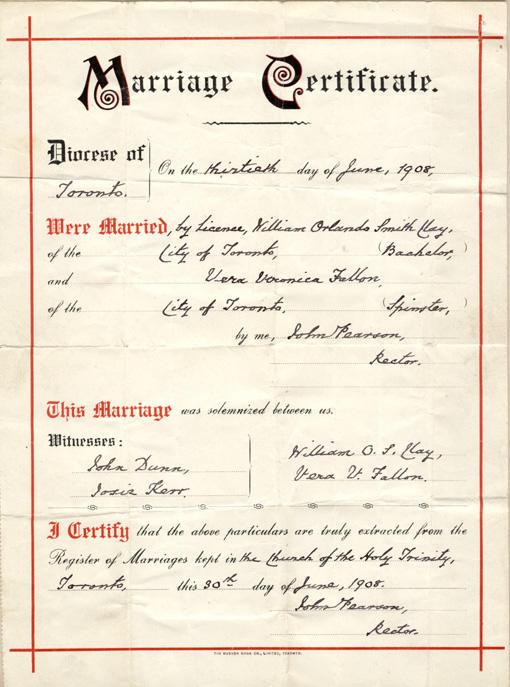 Marriage Certificate.
Diocese of Toronto.
On the thirtieth day of June, 1908,
Were Married, by License, William Orlando Smith Clay,
of the City of Toronto, (Bachelor,)
and Vera Veronica Fallon,
of the City of Toronto, (Spinster,)
by me, John Pearson,
Rector.
This Marriage was solemnized between us.
Witnesses:
John Dunn,
Josie Kerr.
William O. S. Clay,
Vera V. Fallon.
I Certify that the above particulars are truly extracted from the
Register of Marriages kept in the Church of the Holy Trinity,
Toronto, this 30th day of June, 1908.
John Pearson,
Rector.
THE MUSSON BOOK CO., LIMITED, TORONTO.